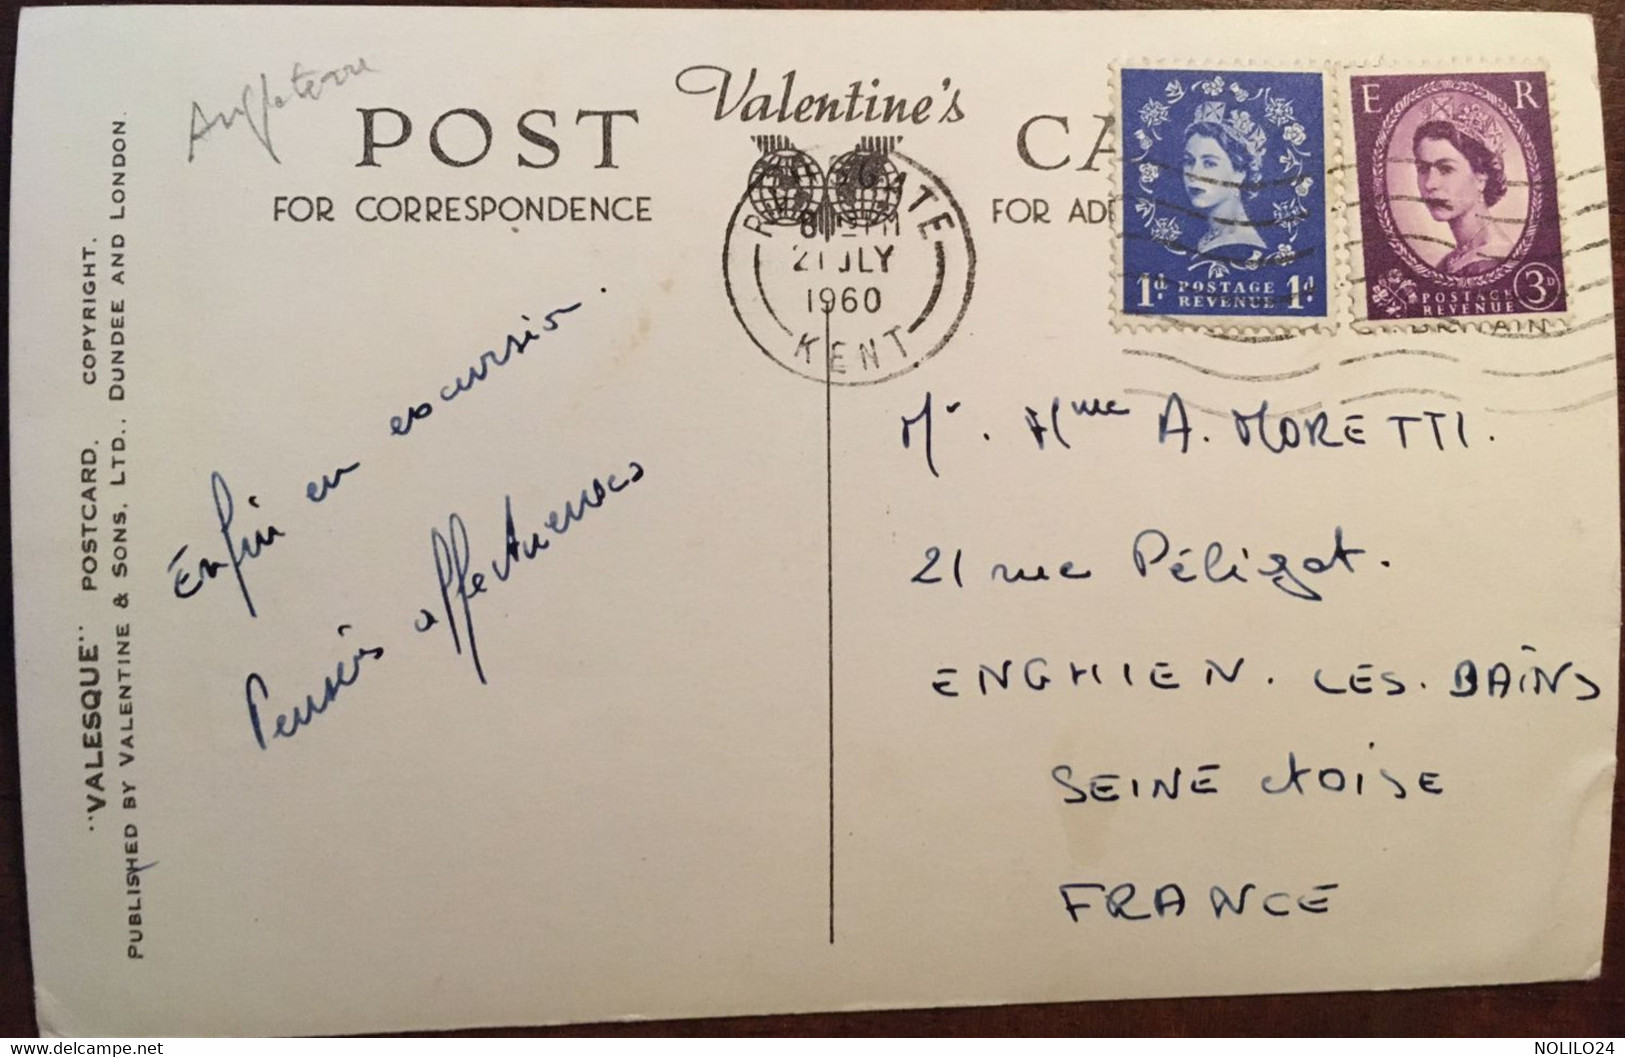 Angleterre
POST
FOR CORRESPONDENCE
Valentine's
CA
FOR ADD
"VALESQUE" POSTCARD. COPYRIGHT.
PUBLISHED BY VALENTINE & SONS, LTD., DUNDEE AND LONDON.
GATE
21 JLY
1960
KENT
1d. POSTAGE REVENUE 1d
E R
POSTAGE REVENUE 3D
BRITAIN
Enfin en excursion.
Pensées affectueuses
Mr. Mme A. MORETTI.
21 rue Péligot.
ENGHIEN. LES. BAINS
SEINE ET OISE
FRANCE
NOLILO24